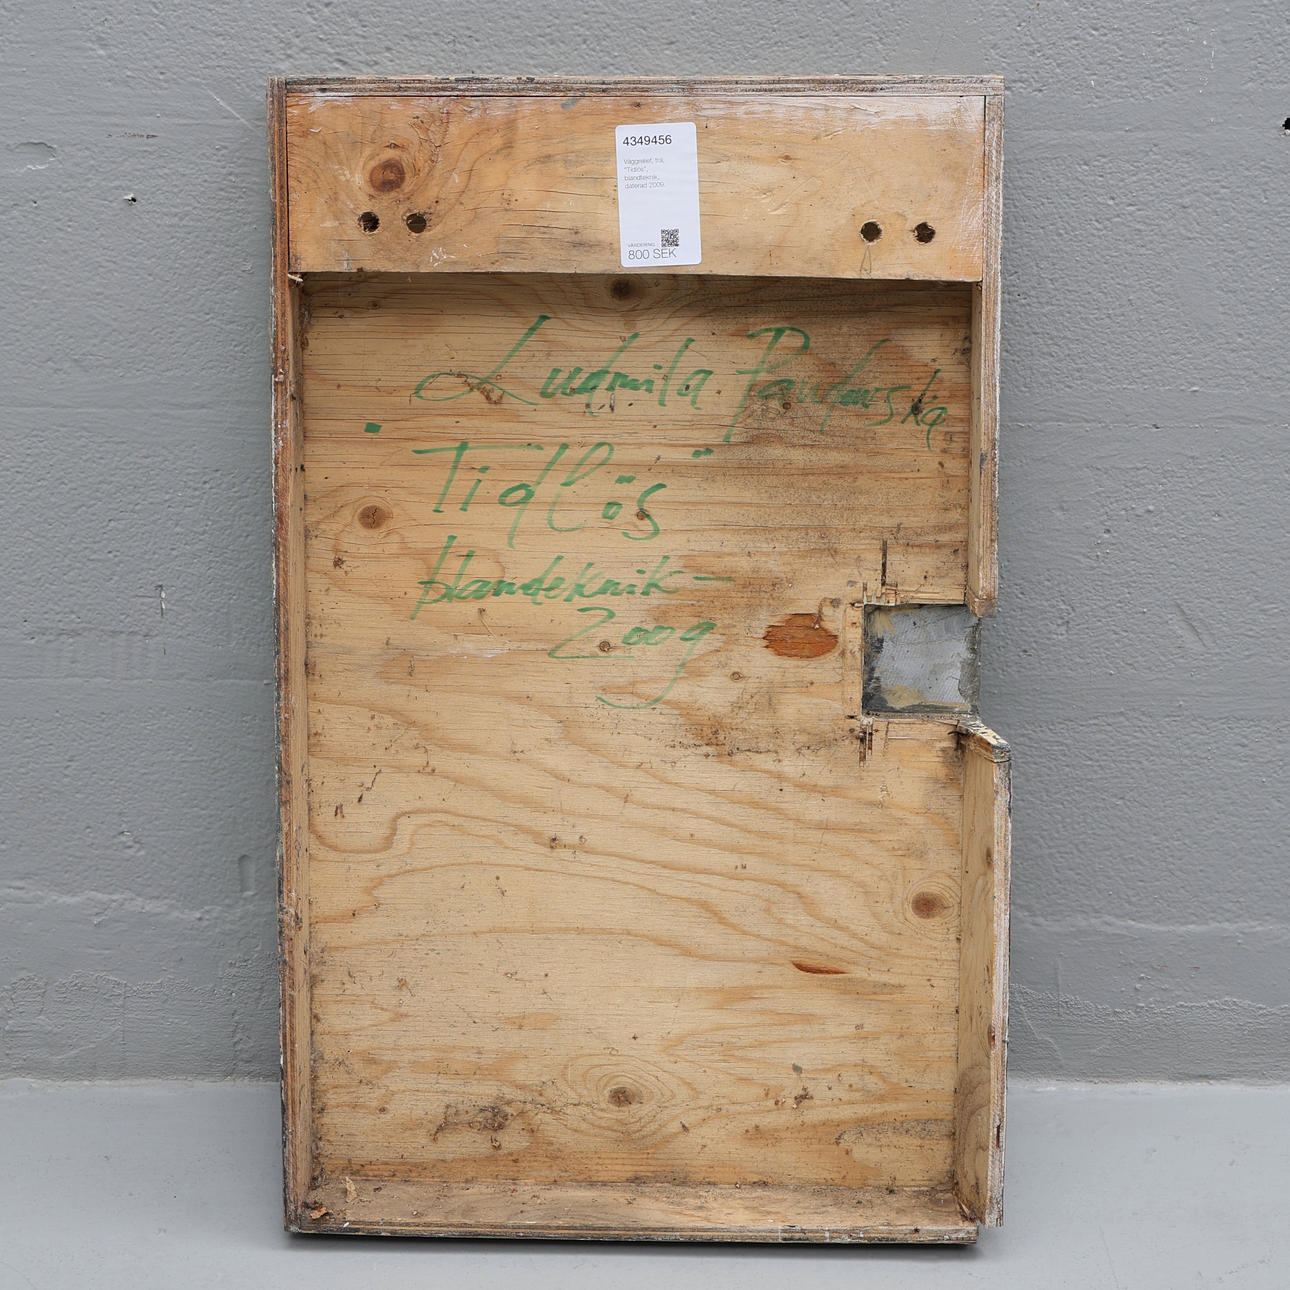 4349456
Väggrelief, trä,
"Tidlös",
blandteknik,
daterad 2009.
VÄRDERING
800 SEK
Ludmila
"Tidlös"
blandteknik -
2009